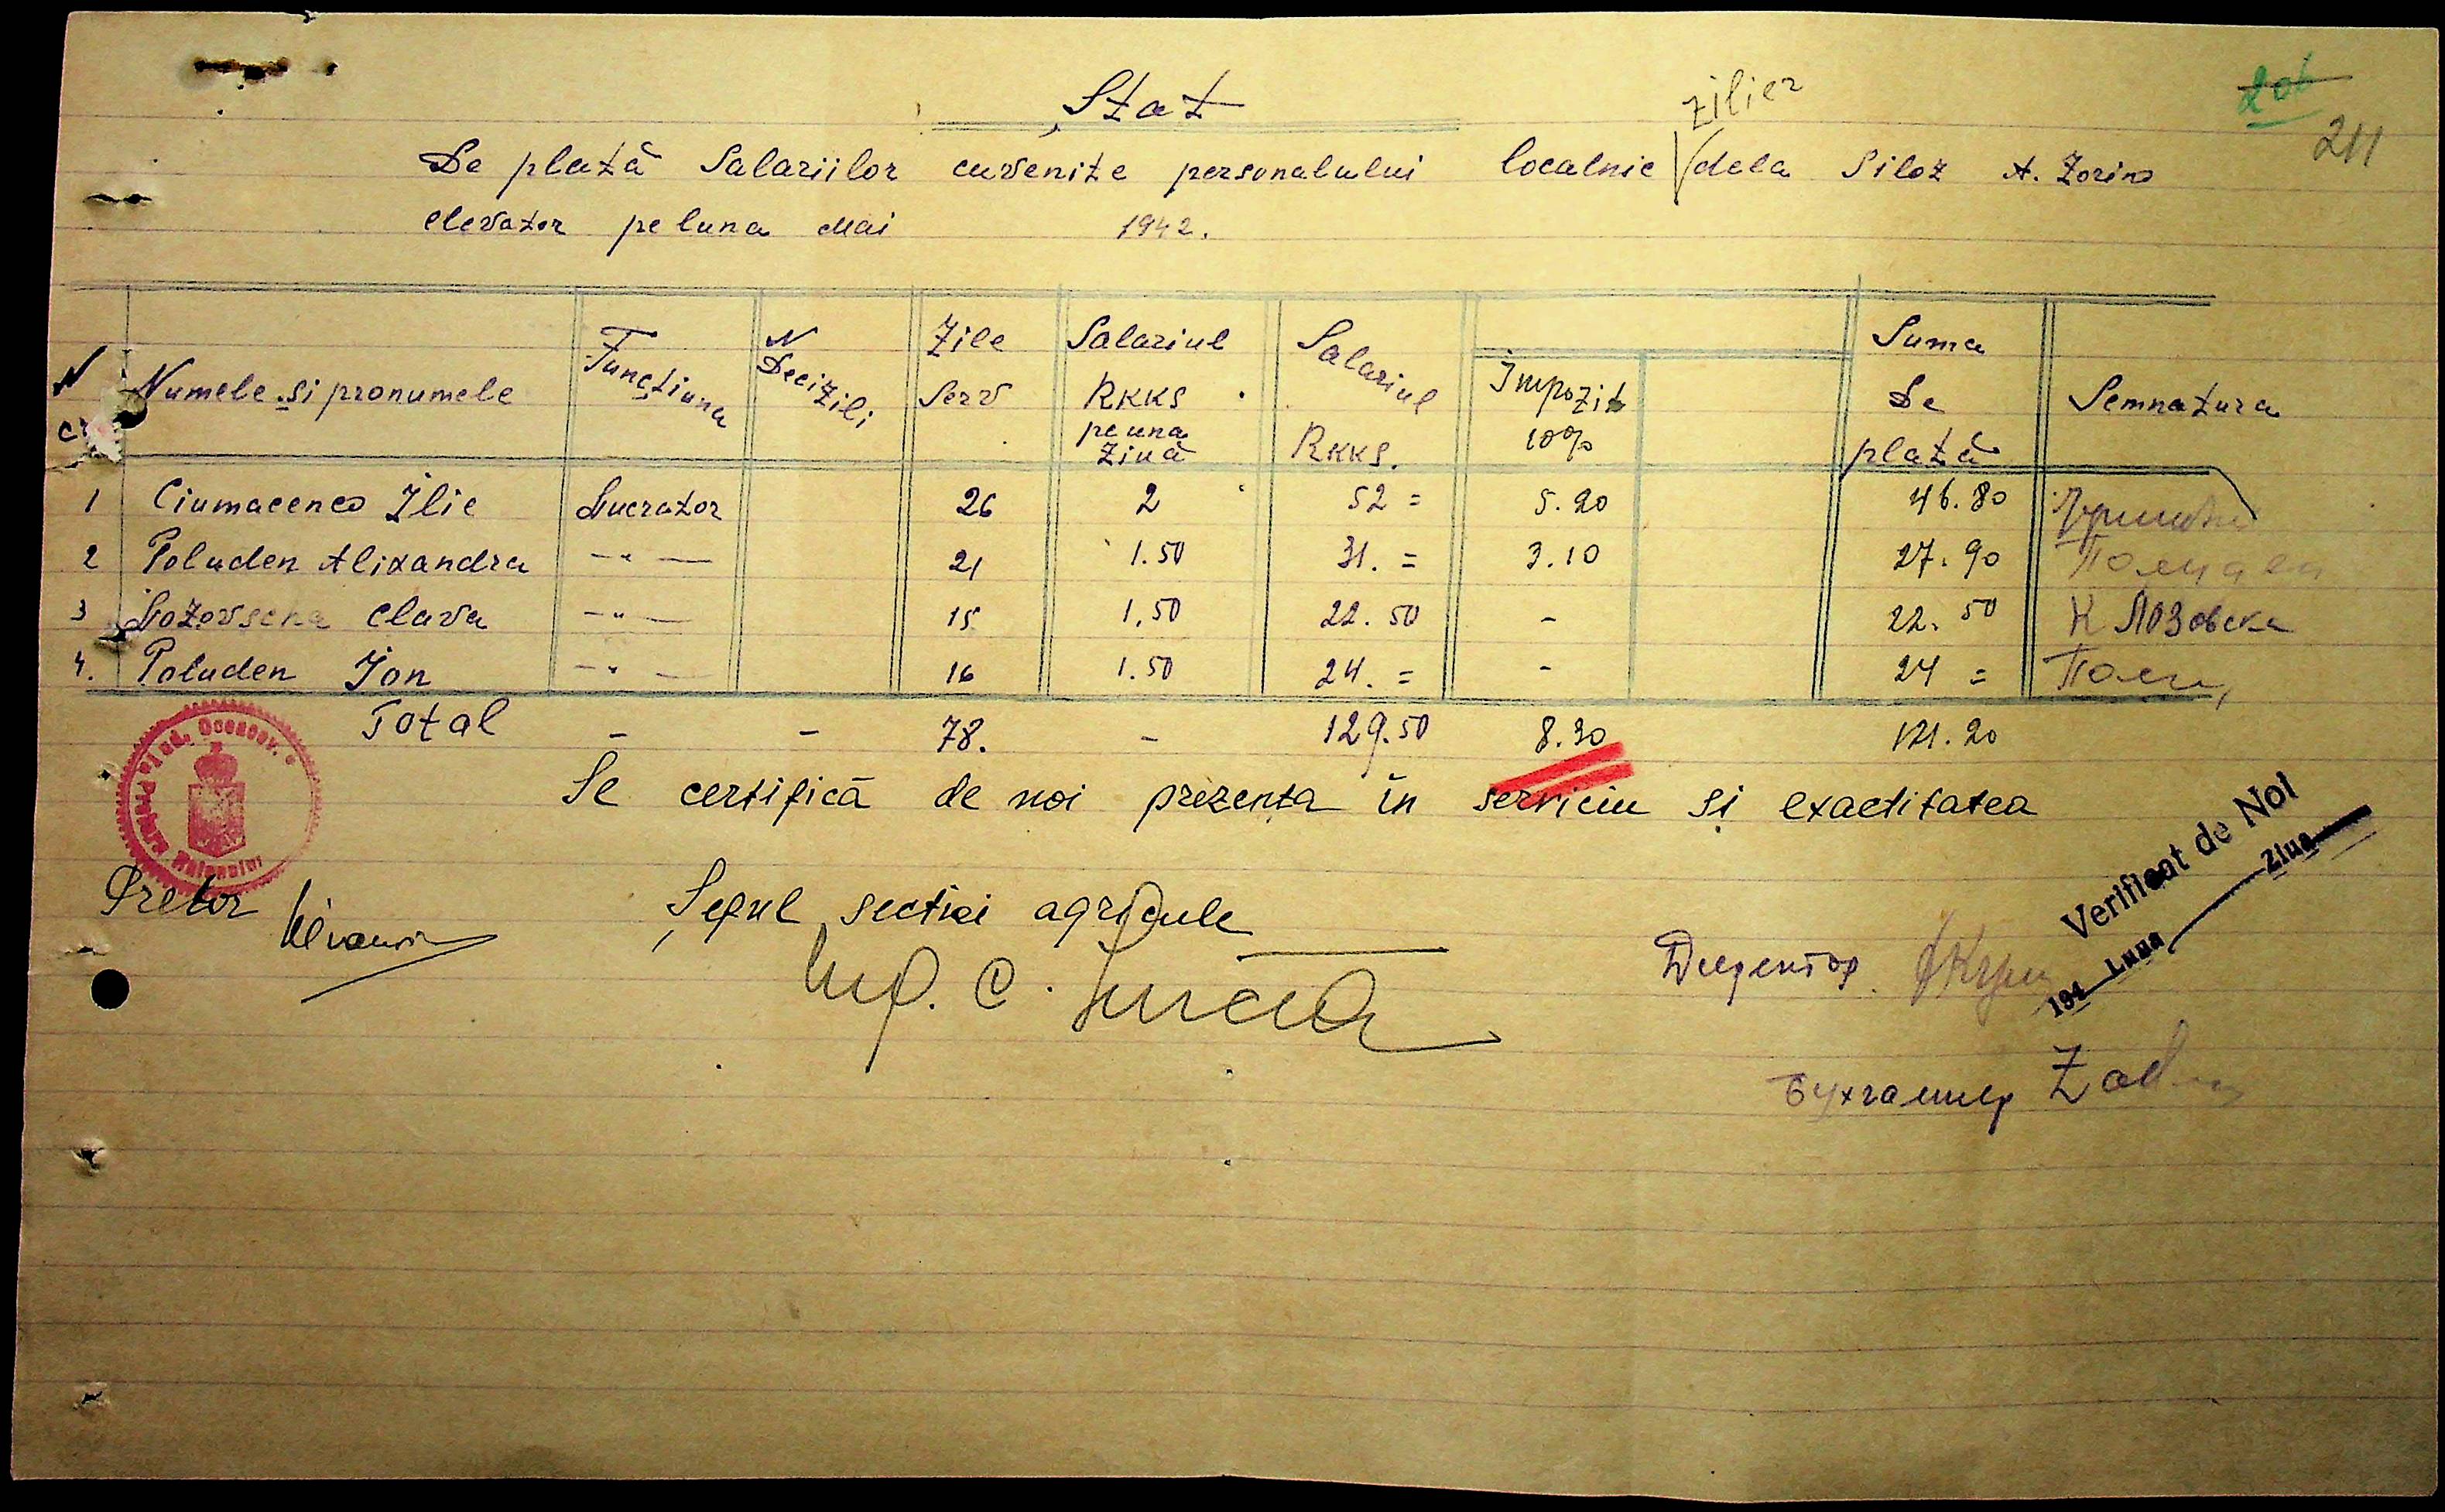 206
211
Stat
zilier
De plată Salariilor cuvenite personalului localnic dela Siloz A. Zorino
elevator pe luna Mai 1942.
N cr Numele și pronumele Funcțiuna N Decizili Zile Serv Salariul RKKS pe una ziuă Salariul RKKS. Impozit 10% Suma De plată Semnatura
1 Ciumacenco Ilie Lucrator 26 2 52 = 5.20 46.80
2 Poluden Alixandra —"— 21 1.50 31. = 3.10 27.90
3 Lozovscha Clava —"— 15 1.50 22.50 - 22.50 К Лозовска
4. Poluden Ion —"— 16 1.50 24. = - 24 =
Total - - 78. - 129.50 8.30 121.20
Se certifică de noi prezența în serviciu și exactitatea
Pretor
Șeful secției agricole
Ing. C.
Verificat de Noi
194 Luna Ziua
Директор
Бухгалтер